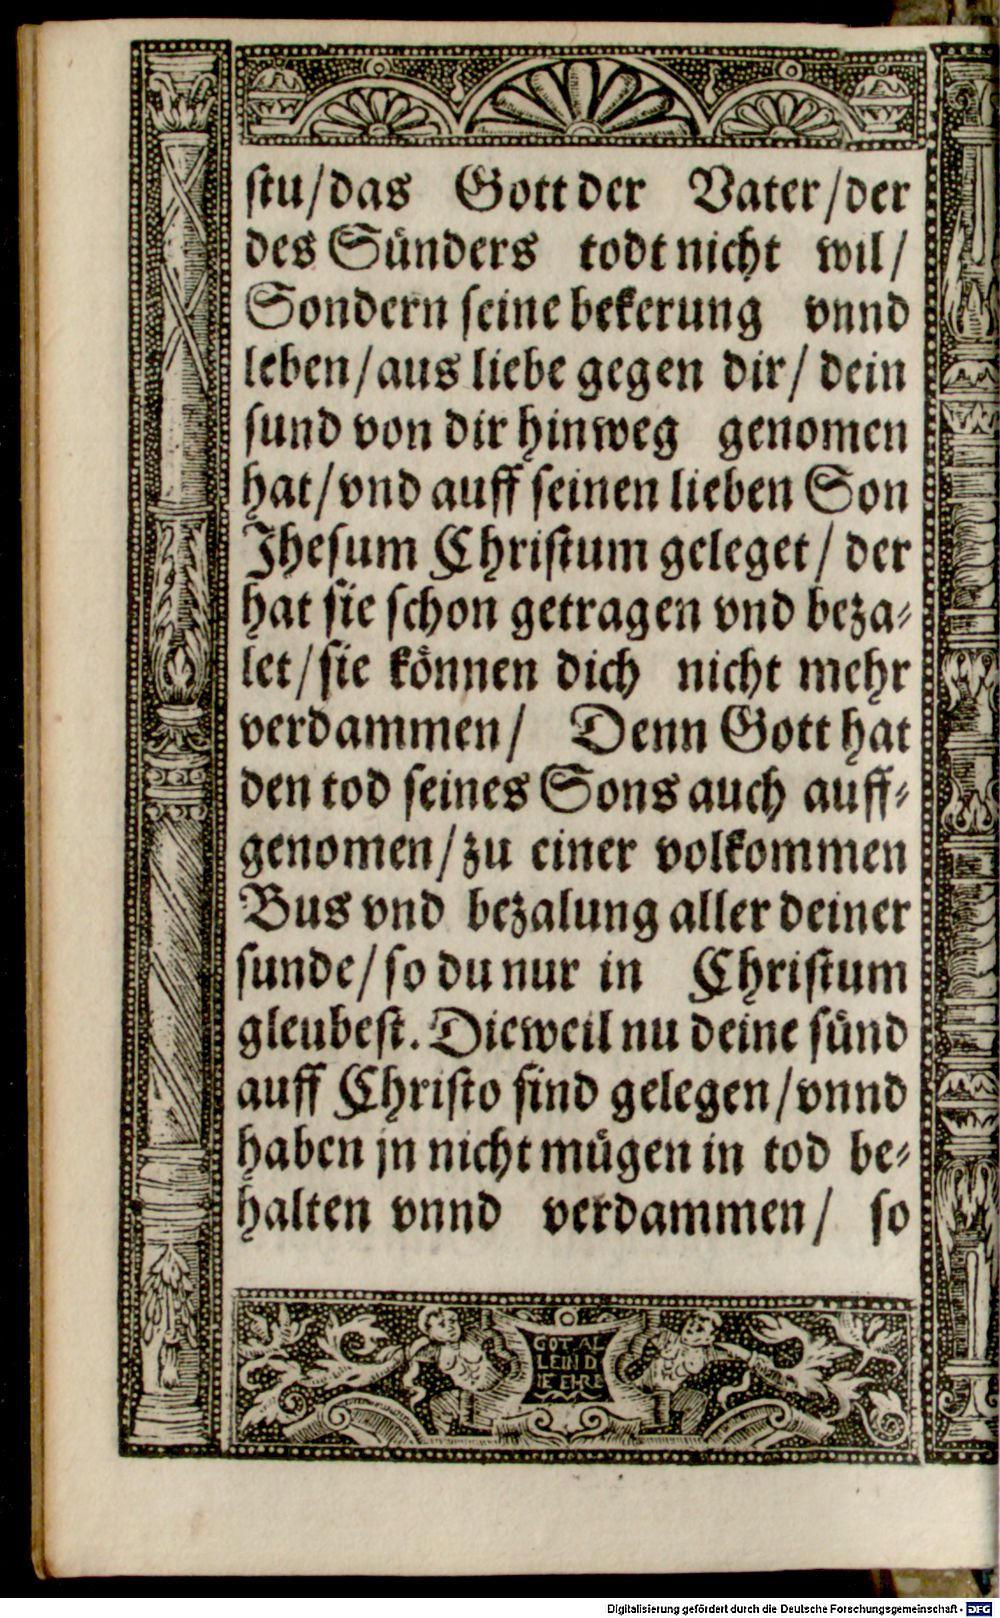 stu/das Gott der Vater/der
des Sünders todt nicht wil/
Sondern seine bekerung vnnd
leben/aus liebe gegen dir/dein
sund von dir hinweg genomen
hat/vnd auff seinen lieben Son
Jhesum Christum geleget/der
hat sie schon getragen vnd beza⸗
let/sie können dich nicht mehr
verdammen/ Denn Gott hat
den tod seines Sons auch auff⸗
genomen/zu einer volkommen
Bus vnd bezalung aller deiner
sunde/so du nur in Christum
gleubest. Dieweil nu deine sünd
auff Christo sind gelegen/vnnd
haben jn nicht mügen in tod be⸗
halten vnnd verdammen/ so
GOT AL
LEIN D
IE EHRE
Digitalisierung gefördert durch die Deutsche Forschungsgemeinschaft - DFG